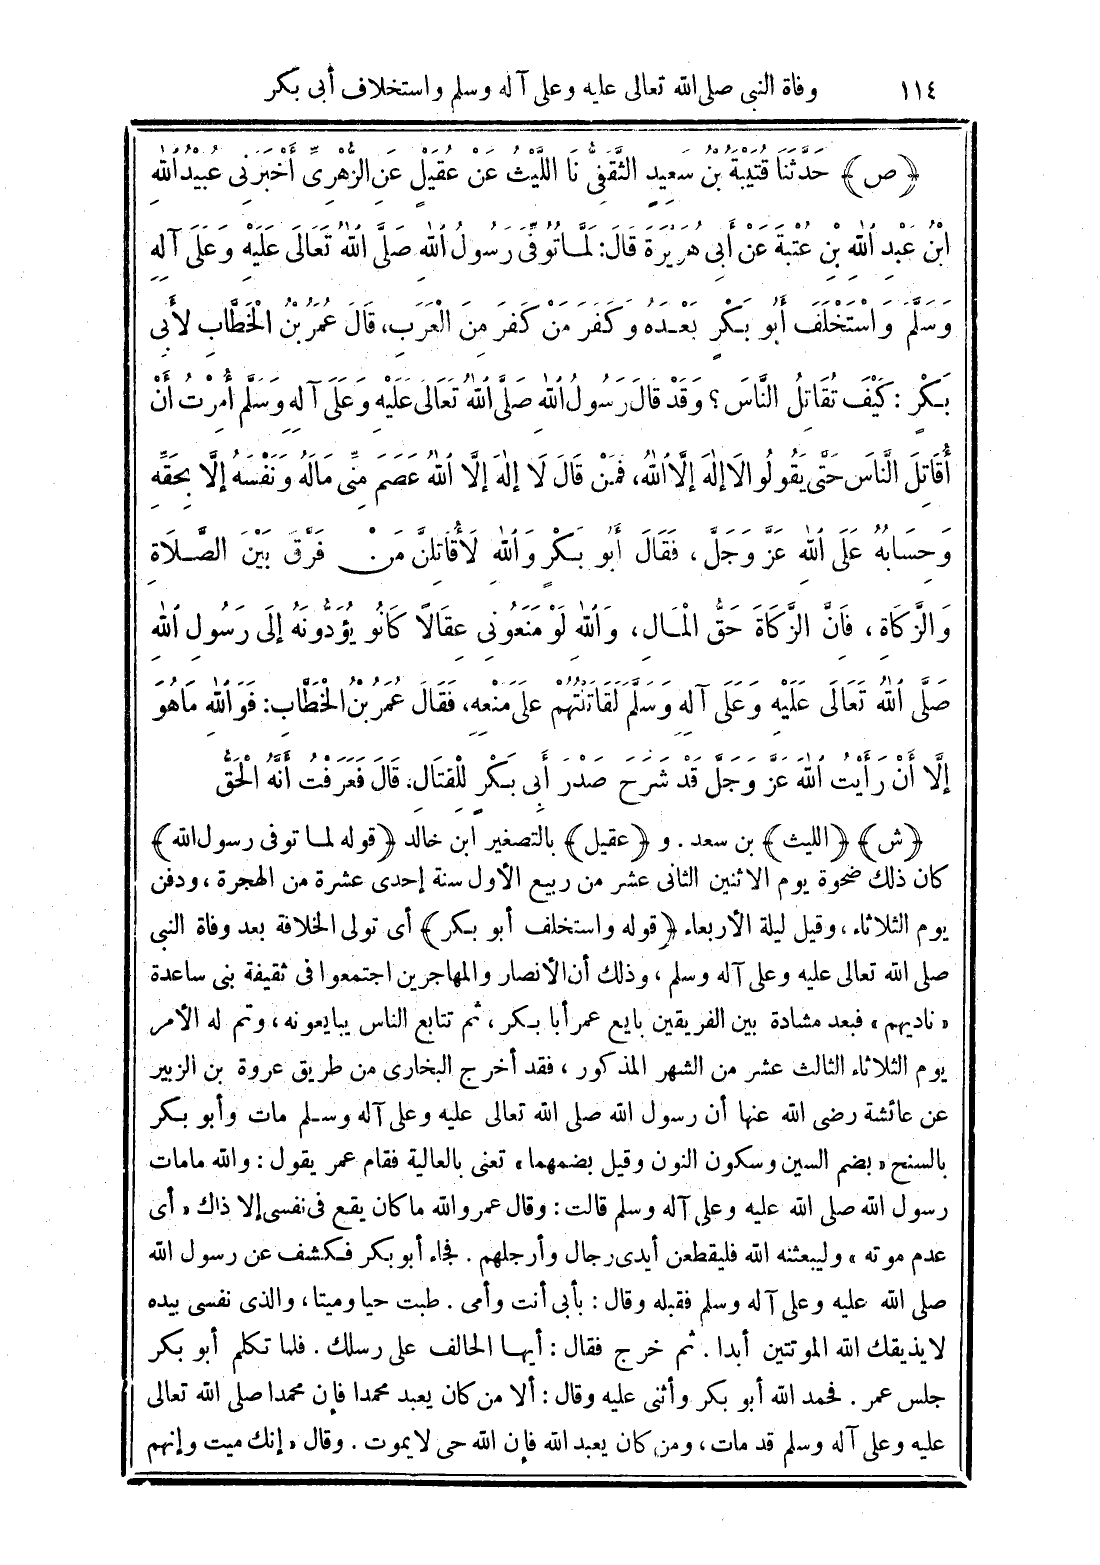 ١١٤ وفاة النبى صلى الله تعالى عليه وعلى آله وسلم واستخلاف أبى بكر
﴿ص﴾ حَدَّثَنَا قُتَيْبَةُ بْنُ سَعِيدٍ الثَّقَفِىُّ نَا اللَّيْثُ عَنْ عُقَيْلٍ عَنِ الزُّهْرِىِّ أَخْبَرَنِى عُبَيْدُ اللهِ
ابْنُ عَبْدِ اللهِ بْنِ عُتْبَةَ عَنْ أَبِى هُرَيْرَةَ قَالَ: لَمَّا تُوُفِّىَ رَسُولُ اللهِ صَلَّى اللهُ تَعَالَى عَلَيْهِ وَعَلَى آلِهِ
وَسَلَّمَ وَاسْتُخْلِفَ أَبُو بَكْرٍ بَعْدَهُ وَكَفَرَ مَنْ كَفَرَ مِنَ الْعَرَبِ، قَالَ عُمَرُ بْنُ الْخَطَّابِ لِأَبِى
بَكْرٍ : كَيْفَ تُقَاتِلُ النَّاسَ؟ وَقَدْ قَالَ رَسُولُ اللهِ صَلَّى اللهُ تَعَالَى عَلَيْهِ وَعَلَى آلِهِ وَسَلَّمَ أُمِرْتُ أَنْ
أُقَاتِلَ النَّاسَ حَتَّى يَقُولُوا لَا إِلٰهَ إِلَّا اللهُ، فَمَنْ قَالَ لَا إِلٰهَ إِلَّا اللهُ عَصَمَ مِنِّى مَالَهُ وَنَفْسَهُ إِلَّا بِحَقِّهِ
وَحِسَابُهُ عَلَى اللهِ عَزَّ وَجَلَّ، فَقَالَ أَبُو بَكْرٍ وَاللهِ لَأُقَاتِلَنَّ مَنْ فَرَّقَ بَيْنَ الصَّلَاةِ
وَالزَّكَاةِ، فَإِنَّ الزَّكَاةَ حَقُّ الْمَالِ، وَاللهِ لَوْ مَنَعُونِى عِقَالًا كَانُو يُؤَدُّونَهُ إِلَى رَسُولِ اللهِ
صَلَّى اللهُ تَعَالَى عَلَيْهِ وَعَلَى آلِهِ وَسَلَّمَ لَقَاتَلْتُهُمْ عَلَى مَنْعِهِ، فَقَالَ عُمَرُ بْنُ الْخَطَّابِ: فَوَاللهِ مَا هُوَ
إِلَّا أَنْ رَأَيْتُ اللهَ عَزَّ وَجَلَّ قَدْ شَرَحَ صَدْرَ أَبِى بَكْرٍ لِلْقِتَالِ. قَالَ فَعَرَفْتُ أَنَّهُ الْحَقُّ
﴿ش﴾ ﴿الليث﴾ بن سعد. و ﴿عقيل﴾ بالتصغير ابن خالد ﴿قوله لما توفى رسول الله﴾
كان ذلك ضحوة يوم الاثنين الثانى عشر من ربيع الأول سنة إحدى عشرة من الهجرة، ودفن
يوم الثلاثاء، وقيل ليلة الأربعاء ﴿قوله واستخلف أبو بكر﴾ أى تولى الخلافة بعد وفاة النبى
صلى الله تعالى عليه وعلى آله وسلم، وذلك أن الأنصار والمهاجرين اجتمعوا فى ثقيفة بنى ساعدة
« ناديهم » فبعد مشادة بين الفريقين بايع عمر أبا بكر، ثم تتابع الناس يبايعونه، وتم له الأمر
يوم الثلاثاء الثالث عشر من الشهر المذكور، فقد أخرج البخارى من طريق عروة بن الزبير
عن عائشة رضى الله عنها أن رسول الله صلى الله تعالى عليه وعلى آله وسلم مات وأبو بكر
بالسنح « بضم السين وسكون النون وقيل بضمهما » تعنى بالعالية فقام عمر يقول : والله مامات
رسول الله صلى الله عليه وعلى آله وسلم قالت : وقال عمر والله ما كان يقع فى نفسى إلا ذاك « أى
عدم موته » وليبعثنه الله فليقطعن أيدى رجال وأرجلهم. فجاء أبو بكر فكشف عن رسول الله
صلى الله عليه وعلى آله وسلم فقبله وقال : بأبى أنت وأمى. طبت حيا وميتا، والذى نفسى بيده
لا يذيقك الله الموتتين أبدا. ثم خرج فقال : أيها الحالف على رسلك. فلما تكلم أبو بكر
جلس عمر. فحمد الله أبو بكر وأثنى عليه وقال : ألا من كان يعبد محمدا فإن محمدا صلى الله تعالى
عليه وعلى آله وسلم قد مات، ومن كان يعبد الله فإن الله حى لا يموت. وقال « إنك ميت وإنهم